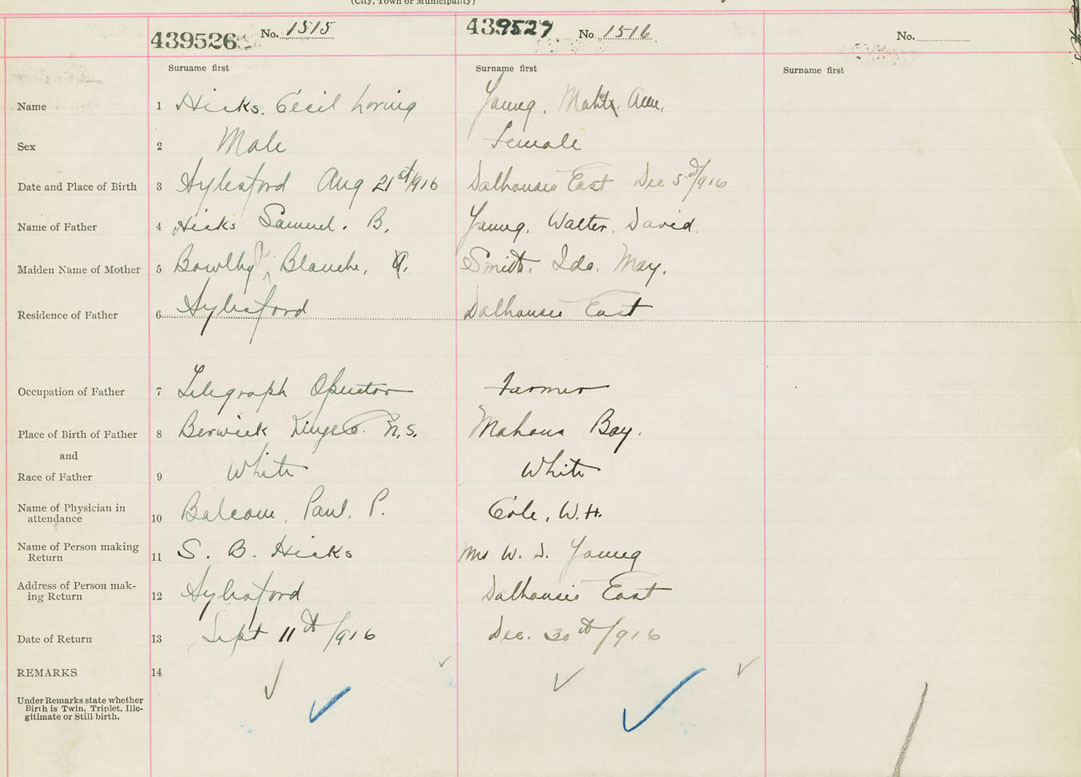 (City, Town or Municipality)
439526 No. 1515 439527 No 1516 No.
Surname first Surname first Surname first
Name 1 Hicks. Cecil Loring Young. Ann.
Sex 2 Male Female
Date and Place of Birth 3 Aylesford Aug 21st/916 Dalhousie East Dec /916
Name of Father 4 Hicks Samuel. B. Young. Walter. David
Maiden Name of Mother 5 Bowlby Blanche, Smith. Ida. May.
Residence of Father 6 Aylesford Dalhousie East
Occupation of Father 7 Telegraph Operator Farmer
Place of Birth of Father 8 Berwick Kings Co. N.S. Mahone Bay.
and
Race of Father 9 White White
Name of Physician in
attendance 10 Balcom, Paul. P. Cole, W.H.
Name of Person making
Return 11 S. B. Hicks Mrs W. D. Young
Address of Person mak-
ing Return 12 Aylesford Dalhousie East
Date of Return 13 Sept 11th/916 Dec. 30th/916
REMARKS 14
Under Remarks state whether
Birth is Twin, Triplet, Ille-
gitimate or Still birth.